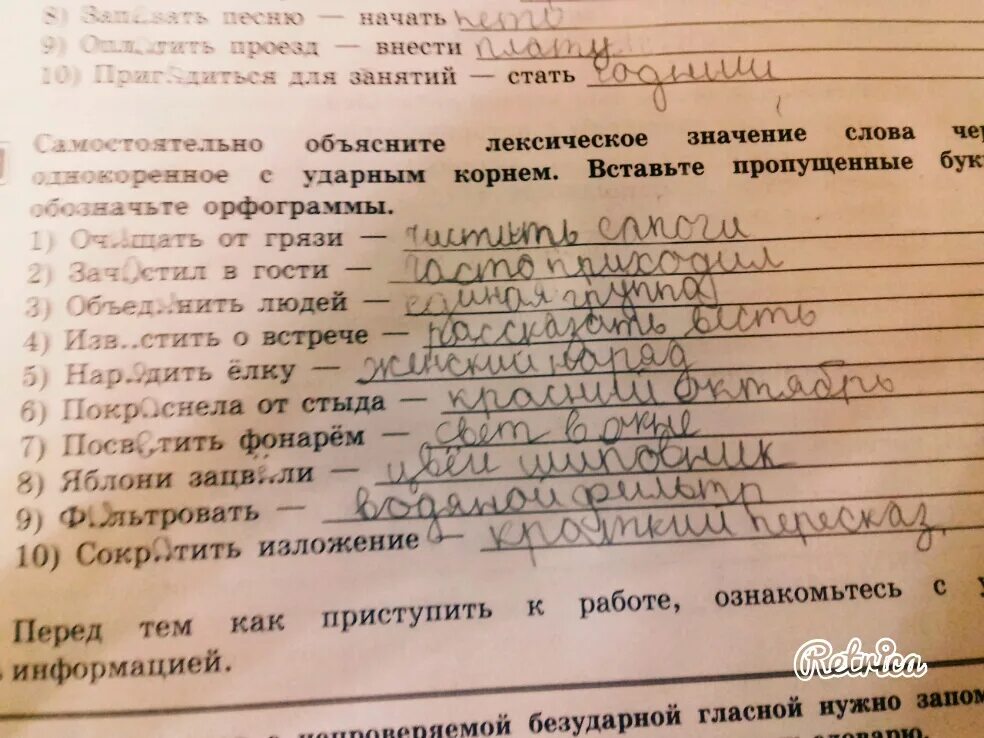 8) Запевать песню — начать петь
9) Оплатить проезд — внести плату
10) Пригодиться для занятий — стать годным
Самостоятельно объясните лексическое значение слова че
однокоренное с ударным корнем. Вставьте пропущенные бук
обозначьте орфограммы.
1) Очищать от грязи — чистить сапоги
2) Зачастил в гости — часто приходил
3) Объединить людей — единая группа
4) Изв..стить о встрече — рассказать весть
5) Нарядить ёлку — женский наряд
6) Покраснела от стыда — красний октябрь
7) Посветить фонарём — свет в окне
8) Яблони зацвели — цвёл шиповник
9) Фильтровать — водяной фильтр
10) Сократить изложение — краткий пересказ.
Перед тем как приступить к работе, ознакомьтесь с
информацией.
непроверяемой безударной гласной нужно запом
словарю.
Retrica